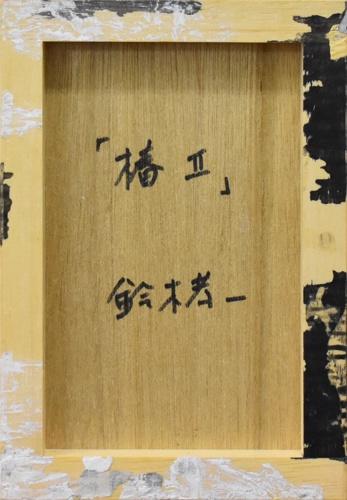 「椿 Ⅱ」
鈴木孝一